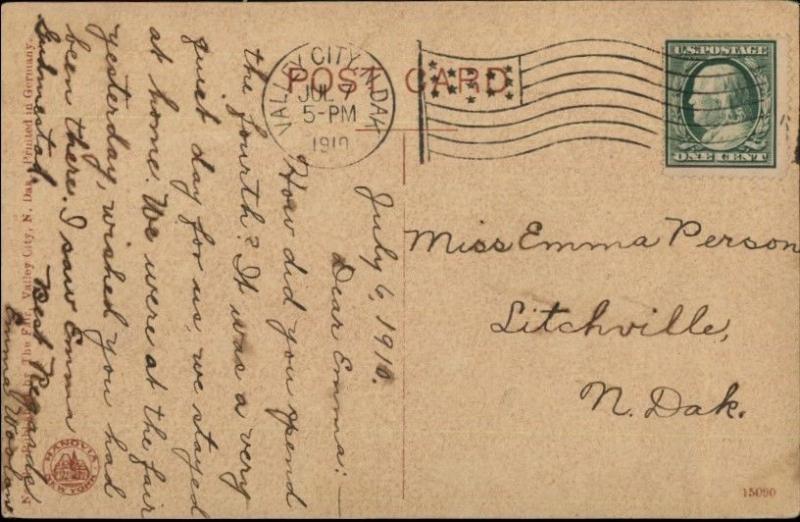 POST CARD
VALLEY CITY N. DAK.
JUL 7
5-PM
1910
U.S. POSTAGE
ONE CENT
July 6, 1910.
Dear Emma:—
How did you spend
the fourth? It was a very
quiet day for us, we stayed
at home. We were at the fair
yesterday, wished you had
been there. I saw Emma
Best Regards
Emma
Miss Emma Person
Litchville,
N. Dak.
Published by The Fair, Valley City, N. Dak. Printed in Germany.
HANOVIA
15090